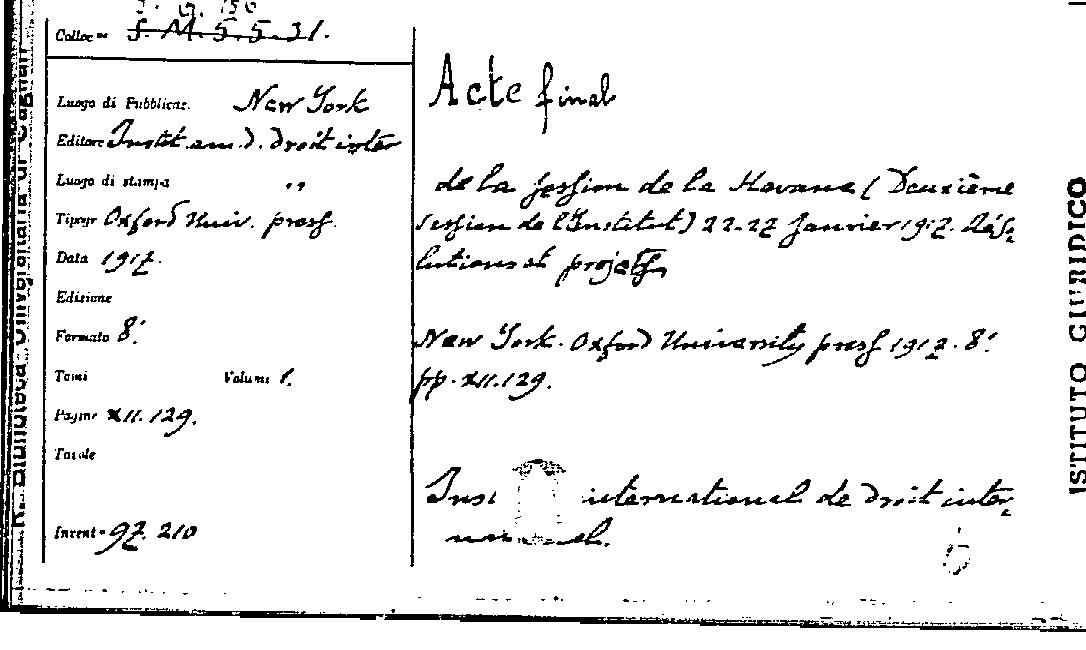 J. G. 150
Colloc.ne S. M. 5. 5. 31.
Luogo di Pubblicaz. New York
Editore Instit. am. d. droit inter
Luogo di stampa "
Tipogr Oxford Univ. press.
Data 1917.
Edizione
Formato 8.°
Tomi Volumi 1.
Pagine XII. 129.
Tavole
Invent.e 97. 210
Acte final
de la session de la Havana (Deuxième
session de l'Institut) 22-27 Janvier 1917. Réso-
lutions et projets,
New York. Oxford University press 1917. 8.°
pp. XII. 129.
Inst international de droit inter-
R. Biblioteca Universitaria di Cagliari
ISTITUTO GIURIDICO